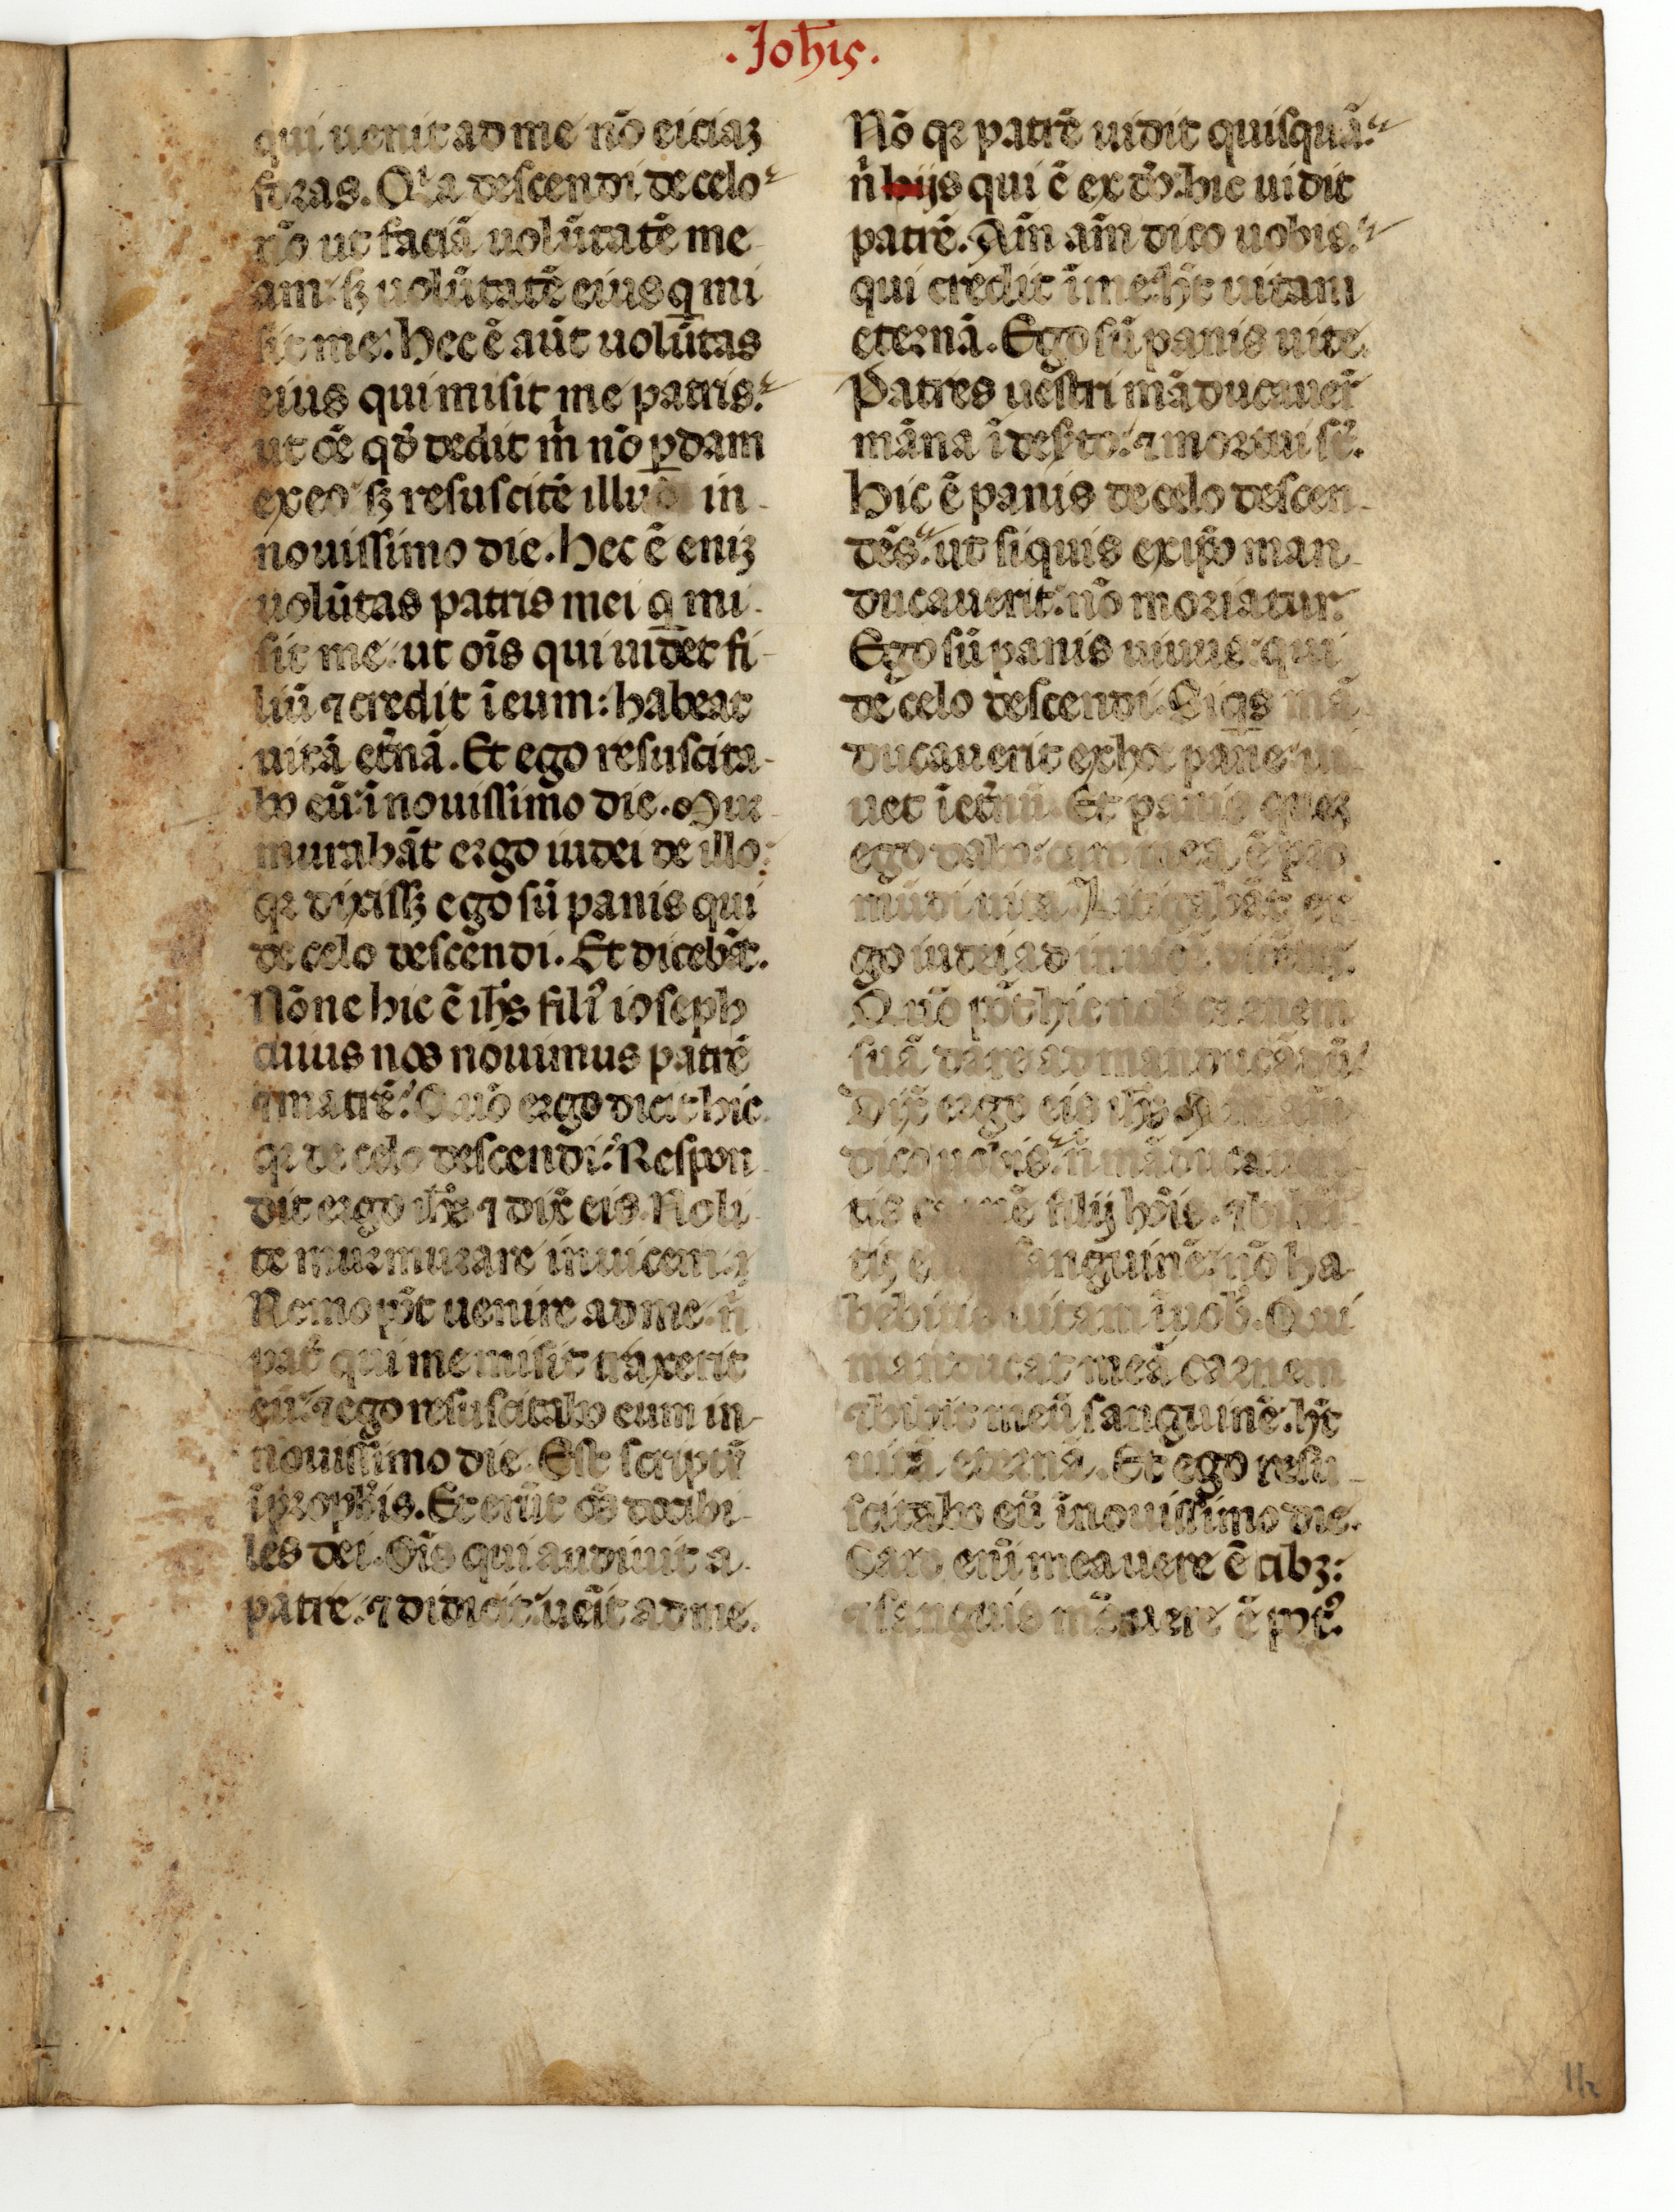 .Joh̄is.
qui uenit ad me nō eiciaꝫ
foras. Qꝛ a descendi de celo
nō ut faciā uolūtatē me
am: sꝫ uolūtatē eius q̄ mi
sit me: Hec ē aūt uolūtas
eius qui misit me patris:
ut oē qđ dedit m̄ nō ꝑdam
ex eo sꝫ resuscitē illud in
nouissimo die. Hec ē eniꝫ
uolūtas patris mei q̄ mi
sit me: ut oīs qui uidet fi
liū ⁊ credit ī eum: habeat
uitā et̄nā. Et ego resuscita
bo eū: ī nouissimo die. Mur
murabāt ergo iudei de illo:
qꝛ dixissꝫ ego sū panis qui
de celo descendi. Et dicebāt.
Nōne hic ē ih̄s filiꝰ ioseph
cuius nos nouimus patrē
⁊ matrē? Quō ergo dicit hic
qꝛ de celo descendi? Respon
dit ergo ih̄s ⁊ dix̄ eis. Noli
te murmurare in uicem
Nemo pōt uenire ad me. n̄
pat̄ qui me misit traxerit
eū: ⁊ ego resuscitabo eum in
nouissimo die. Est scriptū
ī proph̄is. Et erūt oēs docibi
les dei. Oīs qui audiuit a
patre. ⁊ didicit: uēit ad me.
Nō qꝛ patrē uidit quisquā:
n̄ hijs qui ē ex dō: hic uidit
patrē. Am̄ am̄ dico uobis:
qui credit ī me: h̄t uitam
eternā. Ego sū panis uite.
Patres uestri māducauer̄
māna ī deserto: ⁊ mortui st̄.
Hic ē panis de celo descen
dēs: ut siquis ex ip̄o man
ducauerit: nō moriatur.
Ego sū panis uiuus: qui
de celo descendi. Siq̄s mā
ducauerit ex hoc pane: ui
uet ī et̄nū. Et panis queꝫ
ego dabo: caro mea ē pro
mūdi uita. Litigabāt er
go iudei ad inuicē dicētes.
Quō pōt hic nob̄ carnem
suā dare ad manducādū?
Dix̄ ergo eis ih̄s
dico uobis: n̄ māducaueri
tis carnē filij hoīs. ⁊ biberi
tis eius sanguinē: nō ha
bebitis uitam ī uob̄. Qui
manducat meā carnem
⁊ bibit meū sanguinē: h̄t
uitā eternā. Et ego resu
scitabo eū ī nouissimo die.
Caro enī mea uere ē cibꝫ:
⁊ sanguis mēs uere ē potꝰ.